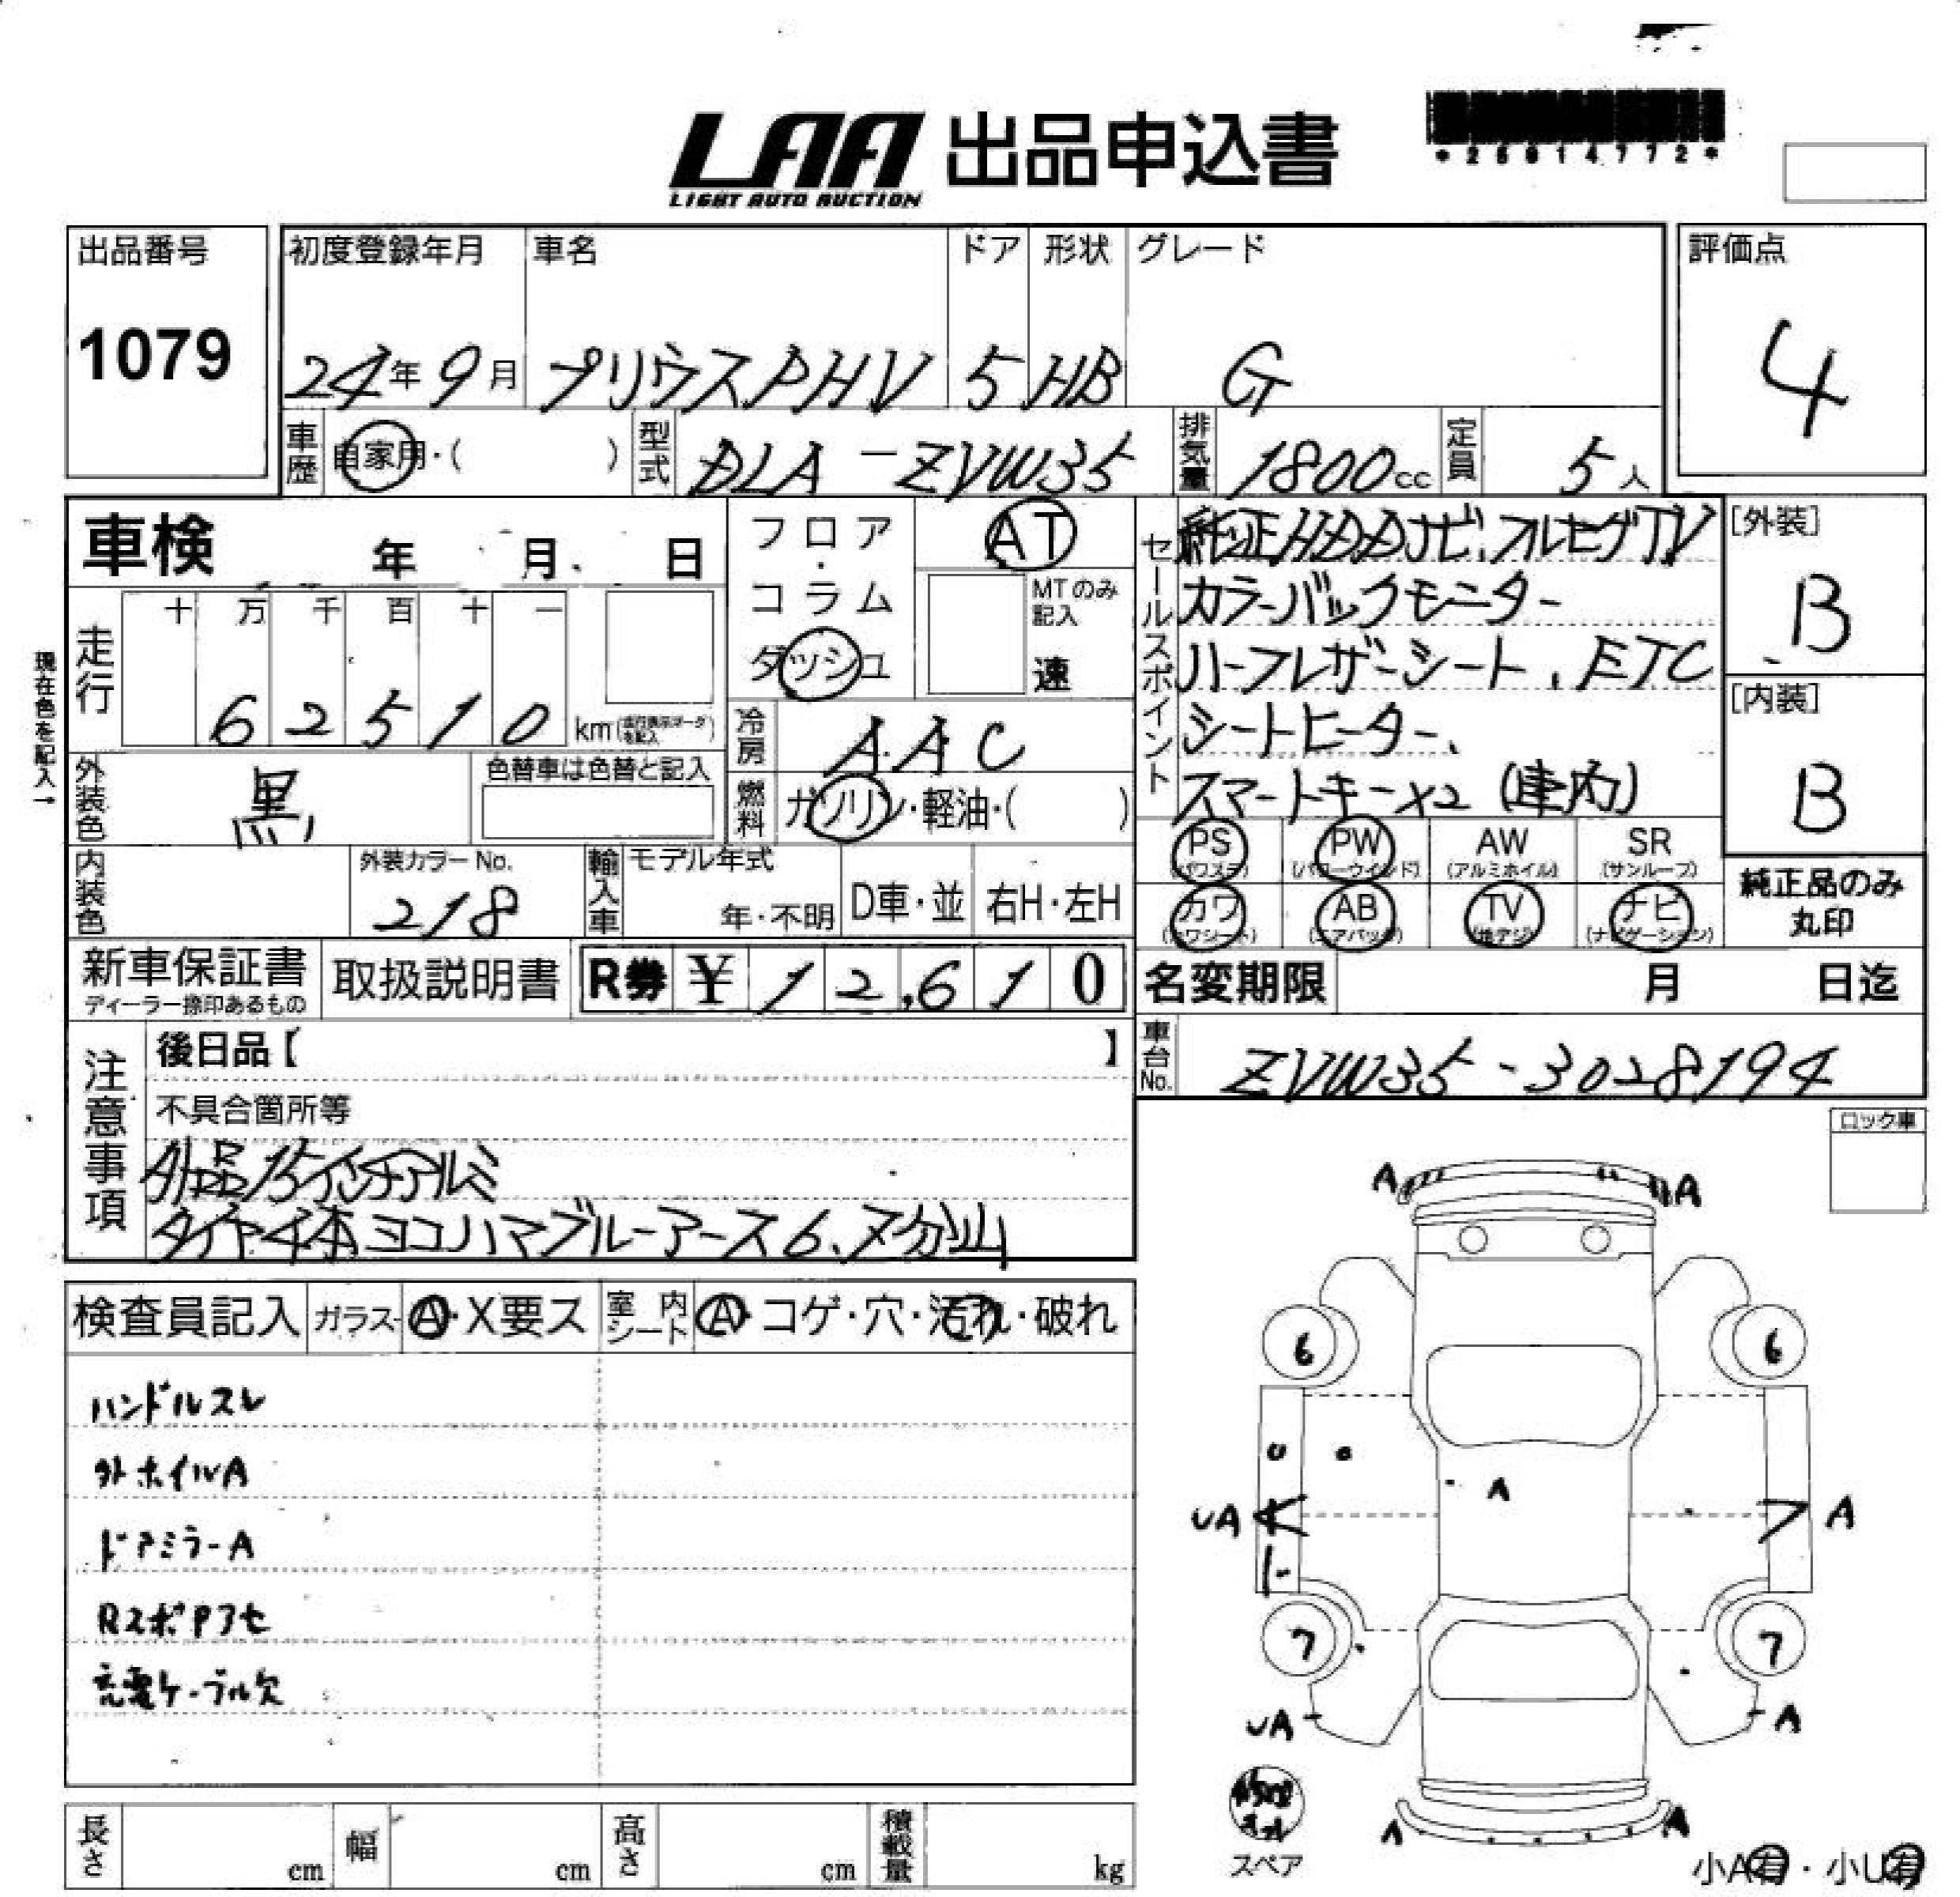 LAA 出品申込書
LIGHT AUTO AUCTION
*25914772*
出品番号
1079
初度登録年月 車名 ドア 形状 グレード
24年9月 プリウスPHV 5 HB G
評価点
4
車歴 自家用・( ) 型式 DLA-ZVW35 排気量 1800cc 定員 5人
車検 年 月 日
フロア・コラム ダッシュ
AT
MTのみ記入
速
セールスポイント
純正HDDナビ、フルセグTV
カラーバックモニター
ハーフレザーシート、ETC
シートヒーター、
スマートキー×2(車内)
[外装]
B
[内装]
B
現在色を記入→
走行 十 万 千 百 十 一
62510 km
冷房 AAC
外装色 黒 色替車は色替と記入
燃料 ガソリン・軽油・( )
PS (パワステ) PW (パワーウインド) AW (アルミホイル) SR (サンルーフ)
カワ (カワシート) AB (エアバッグ) TV (地デジ) ナビ (ナビゲーション)
純正品のみ丸印
内装色 外装カラーNo. 218 輸入車 モデル年式 年・不明 D車・並 右H・左H
新車保証書 ディーラー捺印あるもの 取扱説明書 R券 ¥12,610
名変期限 月 日迄
車台No. ZVW35-3028194
注意事項
後日品【 】
不具合箇所等
外品15インチアルミ
タイヤ4本ヨコハマブルーアース6、7分山
ロック車
検査員記入 ガラス A・X要ス 室内シート A・コゲ・穴・汚れ・破れ
ハンドルスレ
外ホイルA
ドアミラーA
RスポPアセ
充電ケーブル欠
A A
6 6
U
A
UA A
7 7
UA A
A A
スペア
小A有・小U有
長さ cm 幅 cm 高さ cm 積載量 kg